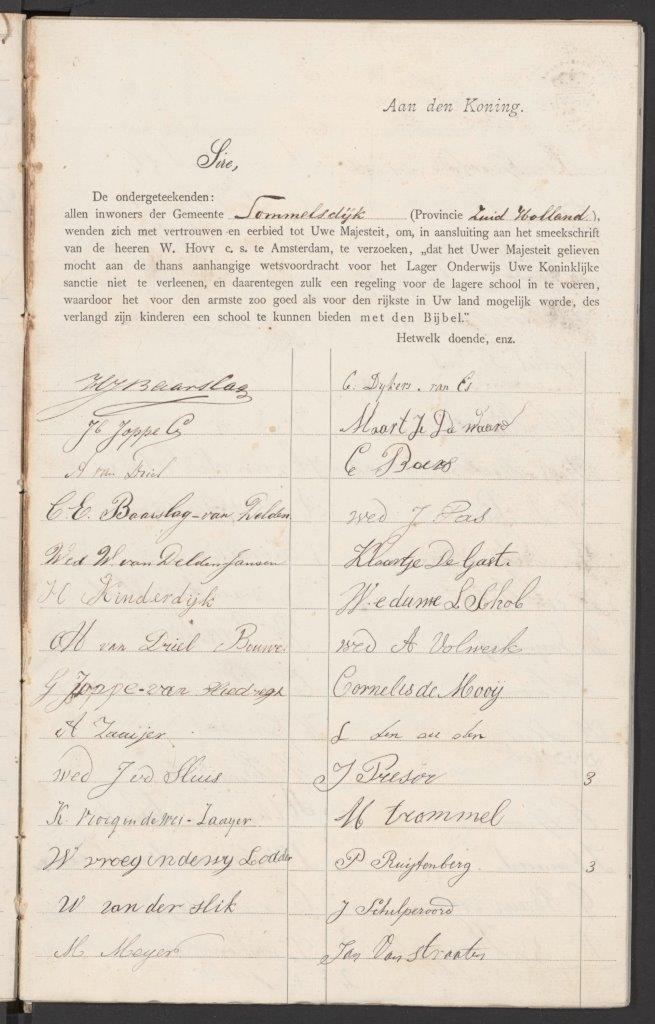 Aan den Koning.
Sire,
De ondergeteekenden:
allen inwoners der Gemeente Sommelsdijk (Provincie Zuid Holland),
wenden zich met vertrouwen en eerbied tot Uwe Majesteit, om, in aansluiting aan het smeekschrift
van de heeren W. Hovy c. s. te Amsterdam, te verzoeken, „dat het Uwer Majesteit gelieven
mocht aan de thans aanhangige wetsvoordracht voor het Lager Onderwijs Uwe Koninklijke
sanctie niet te verleenen, en daarentegen zulk een regeling voor de lagere school in te voeren,
waardoor het voor den armste zoo goed als voor den rijkste in Uw land mogelijk worde, des
verlangd zijn kinderen een school te kunnen bieden met den Bijbel.”
Hetwelk doende, enz.
HJ Baarslag
Joppe
A van Driel
C. E. Baarslag-van Delden
Wed W. van Delden Jansen
H Kinderdijk
M van Driel Bouwe
G Joppe-van
A Zaaijer
wed J vd Sluis
K. Vroegindewei-Zaayer
W vroegindewy Lodder
W van der Slik
M Meyer
C. Dykers. van Es
Maartje De Waard
C Boers
wed J Pas
Klaartje De Gast.
Weduwe L Schob
wed A Volwerk
Cornelis de Mooij
L den
J Presor 3
M trommel
P Ruijtenberg 3
J Schelperoord
Jan Van straaten